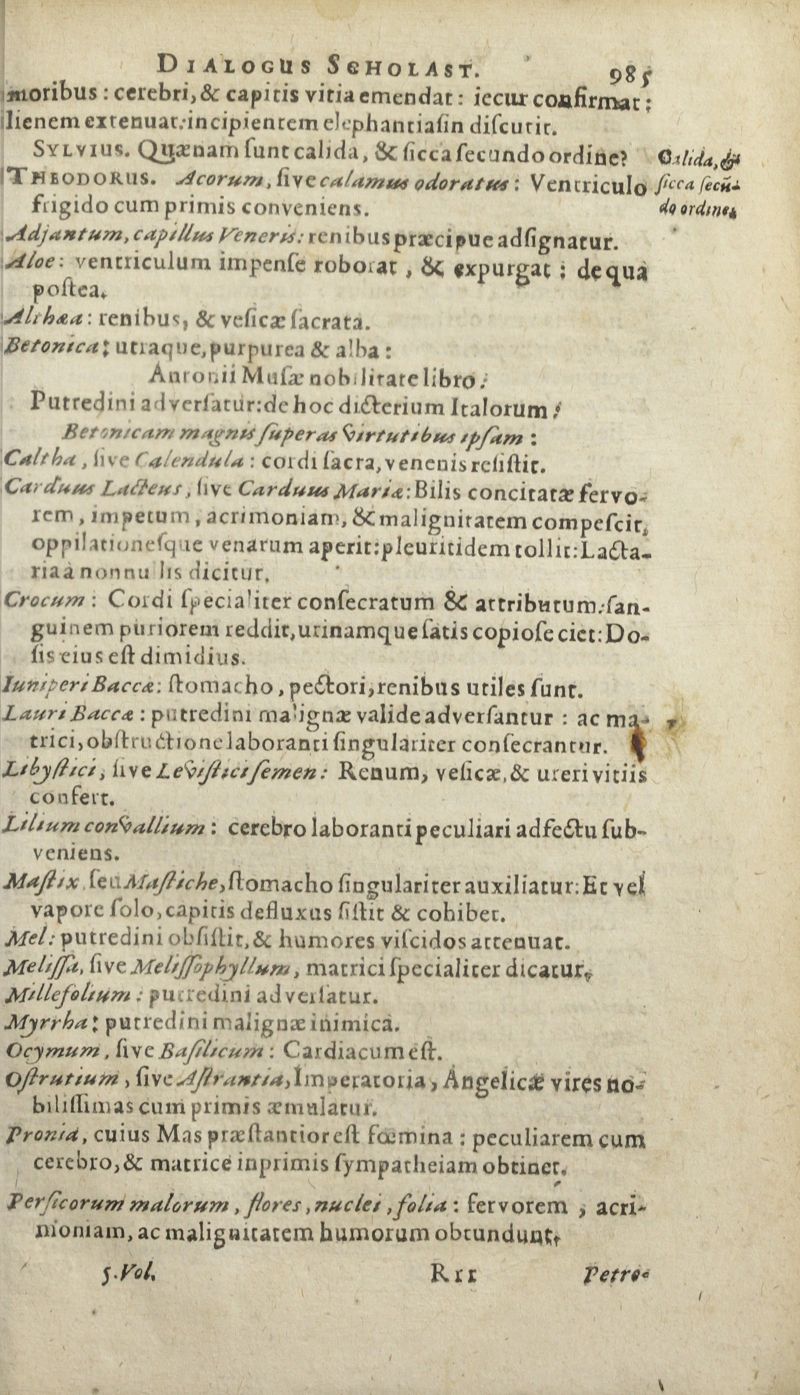 DIALOGUS SCHOLAST. 985
moribus : cerebri, & capitis vitia emendat : iecur confirmat :
lienem extenuat: incipientem elephantiaſin diſcutit.
SYLVIUS. Quænam ſunt calida, & ſicca ſecundo ordine?
Calida, &
ſicca ſecū-
do ordine.
THEODORUS. Acorum, ſive calamus odoratus : Ventriculo
frigido cum primis conveniens.
Adjantum, capillus Veneris: renibus præcipue adſignatur.
Aloe: ventriculum impenſe roborat, & expurgat ; de quâ
poſtea.
Althæa : renibus, & veſicæ ſacrata.
Betonica : utraque, purpurea & alba :
Antonii Muſæ nobilitate libro.
Putredini adverſatur: de hoc dicterium Italorum :
Betonicam magnis ſuperas virtutibus ipſam :
Caltha, ſive Calendula : cordi ſacra, venenis reſiſtit.
Carduus Lacteus, ſive Carduus Mariæ: Bilis concitatæ fervo-
rem, impetum, acrimoniam, & malignitatem compeſcit,
oppilationeſque venarum aperit: pleuritidem tollit: Lacta-
ria à nonnullis dicitur.
Crocum : Cordi ſpecialiter conſecratum & attributum: ſan-
guinem puriorem reddit, urinamque ſatis copioſe ciet: Do-
ſis eius eſt dimidius.
Iuniperi Baccæ: ſtomacho, pectori, renibus utiles ſunt.
Lauri Baccæ : putredini malignæ valide adverſantur : ac ma-
trici, obſtructione laboranti ſingulariter conſecrantur.
Libyſtici, ſive Leviſtici ſemen: Renum, veſicæ, & ureri vitiis
confert.
Lilium convallium : cerebro laboranti peculiari adfectu ſub-
veniens.
Maſtix, ſeu Maſtiche, ſtomacho ſingulariter auxiliatur: Et vel
vapore ſolo, capitis defluxus ſiſtit & cohibet.
Mel: putredini obſiſtit, & humores viſcidos attenuat.
Meliſſa, ſive Meliſſophyllum, matrici ſpecialiter dicatur.
Millefolium : putredini adverſatur.
Myrrha : putredini malignæ inimica.
Ocymum, ſive Baſilicum : Cardiacum eſt.
Oſtrutium, ſive Aſtrantia, Imperatoria, Angelicæ vires no-
biliſſimas cum primis æmulatur.
Pronia, cuius Mas præſtantior eſt fœmina : peculiarem cum
cerebro, & matrice inprimis ſympatheiam obtinet.
Perſicorum malorum, flores, nuclei, folia : fervorem, acri-
moniam, ac malignitatem humorum obtundunt.
5. Vol. Rrr Petro-